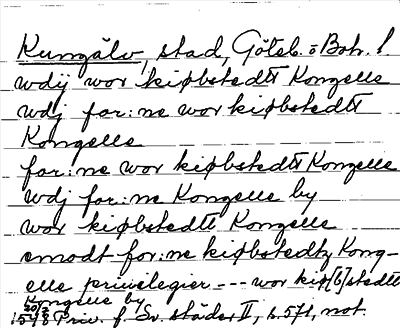 Kungälv, stad, Göteb. o Boh. l
wdij wor kiøbstedtt Kongelle
wdj for:ne wor kiøbstedtt
Kongelle
for:ne wor kiøbstedtt Kongelle
wdj for:ne Kongelle by
wor kiøbstedtt Kongelle
emodt for:ne kiøbstedtz Kong-
elle privilegier --- wor kiø[b]stedtt
Kongelle by
1598 20/3 Priv. f. Sv. städer II, s. 571, not.